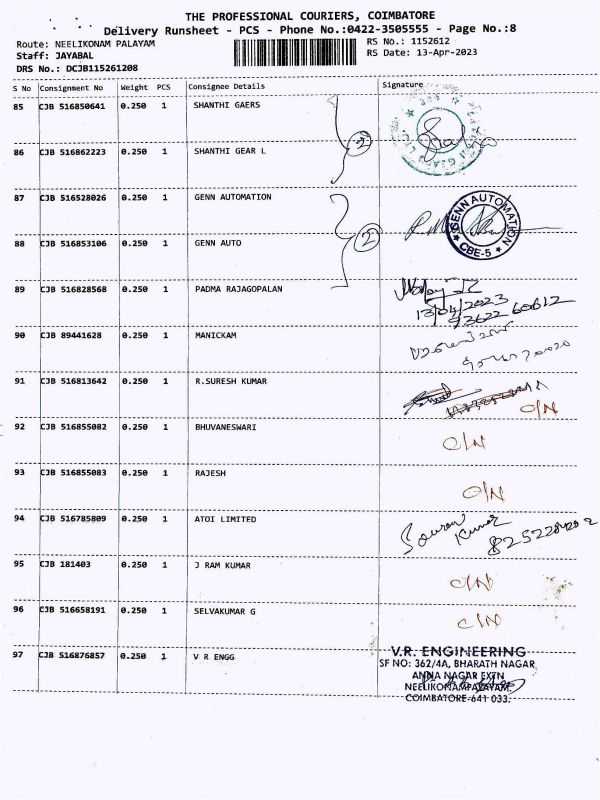 THE PROFESSIONAL COURIERS, COIMBATORE
Delivery Runsheet - PCS - Phone No.:0422-3505555 - Page No.:8
Route: NEELIKONAM PALAYAM
RS No.: 1152612
Staff: JAYABAL
RS Date: 13-Apr-2023
DRS No.: DCJB115261208
S No Consignment No Weight PCS Consignee Details Signature
85 CJB 516850641 0.250 1 SHANTHI GAERS
2
86 CJB 516862223 0.250 1 SHANTHI GEAR L
87 CJB 516528026 0.250 1 GENN AUTOMATION
GENN AUTOMATION
CBE-5
2
88 CJB 516853106 0.250 1 GENN AUTO
89 CJB 516828568 0.250 1 PADMA RAJAGOPALAN
13/04/2023
93622 60612
90 CJB 89441628 0.250 1 MANICKAM
91 CJB 516813642 0.250 1 R.SURESH KUMAR
O/N
92 CJB 516855082 0.250 1 BHUVANESWARI
O/N
93 CJB 516855083 0.250 1 RAJESH
O/N
94 CJB 516785809 0.250 1 ATOI LIMITED
Kumar
95 CJB 181403 0.250 1 J RAM KUMAR
O/N
96 CJB 516658191 0.250 1 SELVAKUMAR G
O/N
97 CJB 516876857 0.250 1 V R ENGG
V.R. ENGINEERING
SF NO: 362/4A, BHARATH NAGAR
ANNA NAGAR EXTN
NEELIKONAMPALAYAM.
COIMBATORE-641 033.